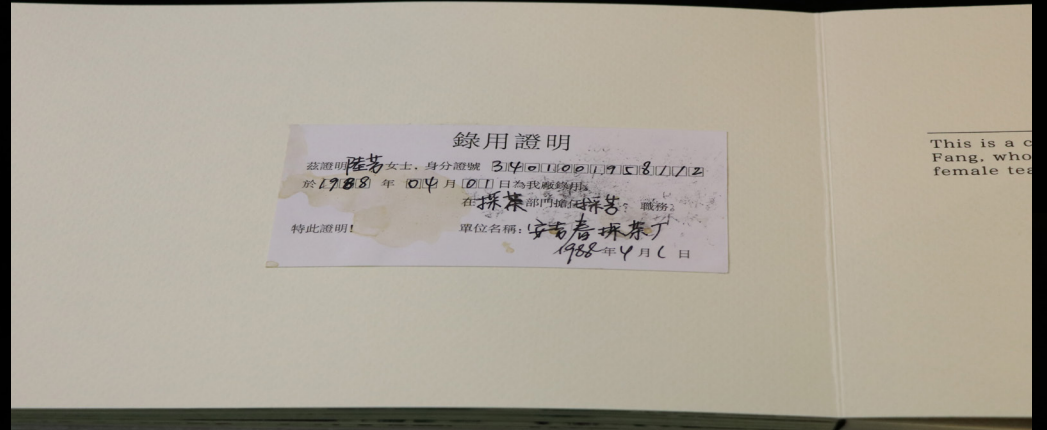 錄用證明
茲證明陸芳女士，身分證號 34010019581112
於1988年04月01日為我廠錄用。
在採茶部門擔任採 職務。
特此證明! 單位名稱:安吉春採茶厂
1988年4月1日
This is a c
Fang, who
female tea